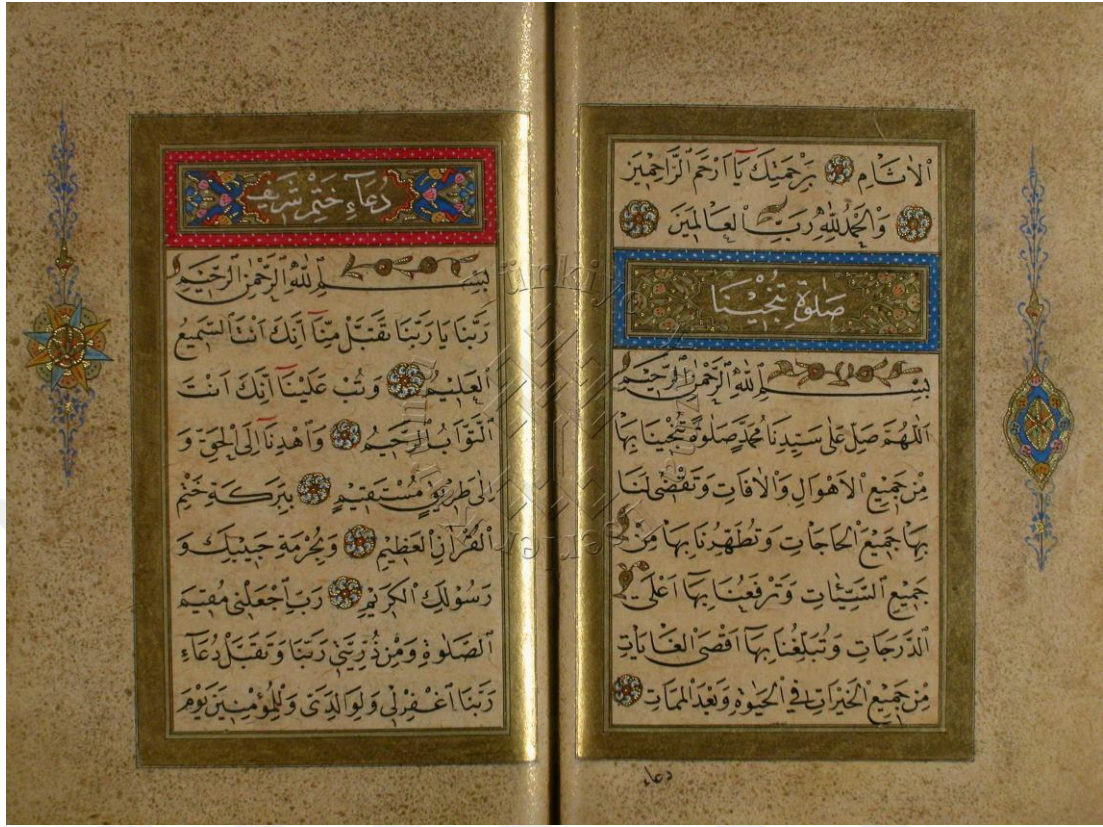 اَلْاٰثَامِ بِرَحْمَتِكَ يَٓا اَرْحَمَ الرَّاحِمِينَ
وَالْحَمْدُ لِلّٰهِ رَبِّ الْعَالَمِينَ
صَلٰوةِ تُنْجِينَا
بِسْمِ اللّٰهِ الرَّحْمٰنِ الرَّحِيمِ
اَللّٰهُمَّ صَلِّ عَلٰى سَيِّدِنَا مُحَمَّدٍ صَلٰوةً تُنْجِينَا بِهَا
مِنْ جَمِيعِ الْاَهْوَالِ وَالْاٰفَاتِ وَتَقْضِى لَنَا
بِهَا جَمِيعَ الْحَاجَاتِ وَتُطَهِّرُنَا بِهَا مِنْ
جَمِيعِ السَّيِّئَاتِ وَتَرْفَعُنَا بِهَٓا اَعْلَى
الدَّرَجَاتِ وَتُبَلِّغُنَا بِهَٓا اَقْصَى الْغَايَاتِ
مِنْ جَمِيعِ الْخَيْرَاتِ فِى الْحَيٰوةِ وَبَعْدَ الْمَمَاتِ
دعاء
دُعَٓاءِ خَتْمِ شَرِيف
بِسْمِ اللّٰهِ الرَّحْمٰنِ الرَّحِيمِ
رَبَّنَا يَا رَبَّنَا تَقَبَّلْ مِنَّٓا اِنَّكَ اَنْتَ السَّمِيعُ
الْعَلِيمُ وَتُبْ عَلَيْنَٓا اِنَّكَ اَنْتَ
التَّوَّابُ الرَّحِيمُ وَاهْدِنَٓا اِلَى الْحَقِّ وَ
اِلٰى طَرِيقٍ مُسْتَقِيمٍ بِبَرَكَةِ خَتْمِ
الْقُرْاٰنِ الْعَظِيمِ وَبِحُرْمَةِ حَبِيبِكَ وَ
رَسُولِكَ الْكَرِيمِ رَبِّ اجْعَلْنِى مُقِيمَ
الصَّلٰوةِ وَمِنْ ذُرِّيَّتِى رَبَّنَا وَتَقَبَّلْ دُعَٓاءِ
رَبَّنَا اغْفِرْ لِى وَلِوَالِدَىَّ وَلِلْمُؤْمِنِينَ يَوْمَ